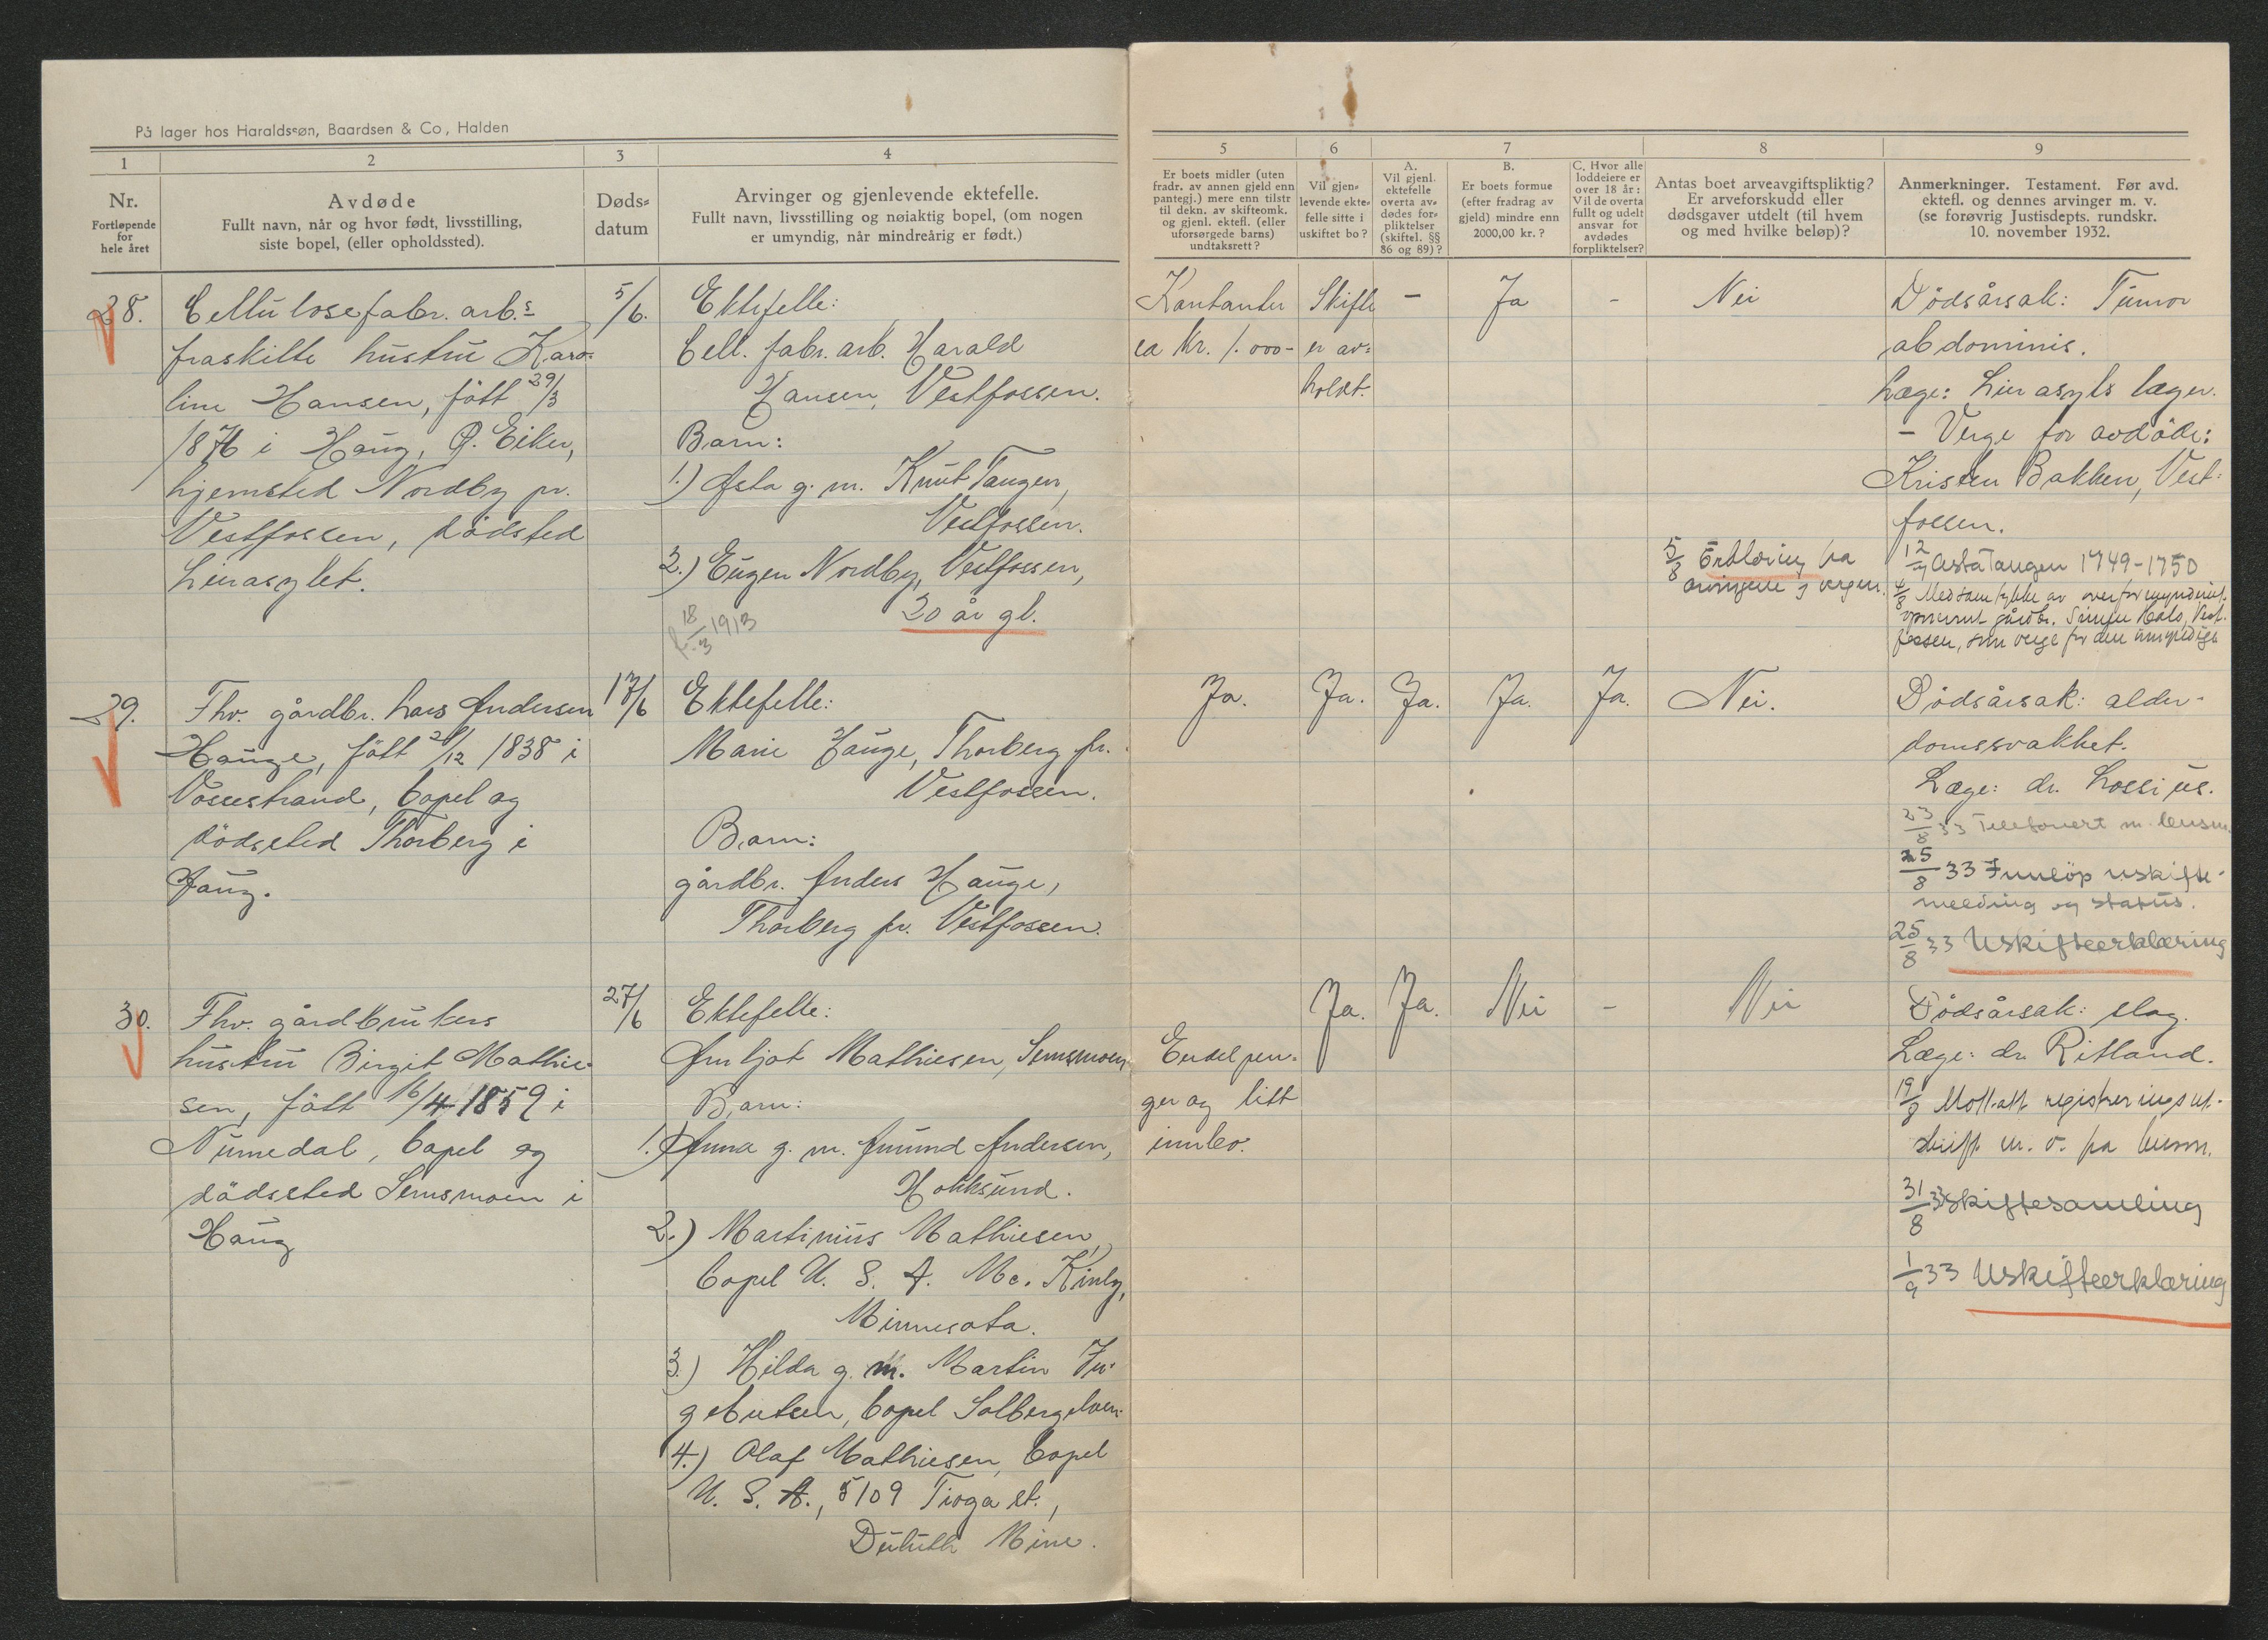 På lager hos Haraldssøn, Baardsen & Co, Halden
1
2
3
4
Nr.
Fortløpende
for
hele året
Avdøde
Fullt navn, når og hvor født, livsstilling,
siste bopel, (eller opholdssted).
Døds-
datum
Arvinger og gjenlevende ektefelle.
Fullt navn, livsstilling og nøiaktig bopel, (om nogen
er umyndig, når mindreårig er født.)
28.
Cellulosefabr. arb.s
fraskilte hustru Karo-
line Hansen, født 29/3
1876 i Haug, Ø. Eiker,
hjemsted Nordby pr.
Vestfossen, dødsted
Lierasylet.
5/6.
Ektefelle:
Cell. fabr. arb. Harald
Hansen, Vestfossen.
Barn:
1.) Asta g. m. Knut Tangen,
Vestfossen.
2.) Eugen Nordby, Vestfossen,
20 år gl.
f. 18/3 1913
29.
Fhv. gårdbr. Lars Andersen
Hauge, født /12 1838 i
Vossestrand, bopel og
dødssted Thorberg i
Haug.
17/6
Ektefelle:
Marie Hauge, Thorberg pr.
Vestfossen.
Barn:
gårdbr. Anders Hauge,
Thorberg pr. Vestfossen.
30.
Fhv. gårdbrukers
hustru Birgit Mathie-
sen, født 16/4 1859 i
Numedal, bopel og
dødssted Semsmoen i
Haug
27/6
Ektefelle:
Mathiesen, Semsmoen
Barn:
1.) Anna g. m. Amund Andersen,
Hokksund.
2.) Martinius Mathiesen,
bopel U. S. A. Mc. Kinly,
Minnesota.
3.) Hilda g. m. Martin In-
gebretsen, bopel Solbergelven.
4.) Olaf Mathiesen, bopel
U. S. A., 5109 Tioga st.,
Duluth Minn.
5
6
7
8
9
Er boets midler (uten
fradr. av annen gjeld enn
pantegj.) mere enn tilstr
til dekn. av skifteomk.
og gjenl. ektefl. (eller
uforsørgede barns)
undtaksrett?
Vil gjen-
levende ekte-
felle sitte i
uskiftet bo?
A.
Vil gjenl.
ektefelle
overta av-
dødes for-
pliktelser
(skiftel. §§
86 og 89)?
B.
Er boets formue
(efter fradrag av
gjeld) mindre enn
2000,00 kr.?
C. Hvor alle
loddeiere er
over 18 år:
Vil de overta
fullt og udelt
ansvar for
avdødes
forpliktelser?
Antas boet arveavgiftspliktig?
Er arveforskudd eller
dødsgaver utdelt (til hvem
og med hvilke beløp)?
Anmerkninger. Testament. Før avd.
ektefl. og dennes arvinger m. v.
(se forøvrig Justisdepts. rundskr.
10. november 1932.
Kontanter
ca kr. 1.000-
Skifte
er av-
holdt.
-
Ja
-
Nei
5/8 Erklæring fra
arvingene og vergen.
Dødsårsak: Tumor
abdominis.
Læge: Lierasyls læger.
- Verge for avdøde:
Kristen Bakken, Vest-
fossen.
12/7 Asta Tangen 1749-1750
4/8 Med samtykke av overformynderiet
opnevnt gårdbr. Hals, Vest-
fossen, som verge for den umyndige
Ja.
Ja.
Ja.
Ja.
Ja.
Nei.
Dødsårsak: alder-
domssvakhet.
Læge: dr. Lossius.
23/8 33 Telefonert m. lensm.
25/8 33 Innløp uskifte-
melding og status.
25/8 33 Uskifteerklæring
Endel pen-
ger og litt
innbo.
Ja.
Ja.
Nei
-
Nei
Dødsårsak: slag.
Læge: dr. Ritland.
19/8 Mottatt registreringsut-
skrift m. v. fra lensm.
31/8 33 Skiftesamling
1/9 33 Uskifteerklæring